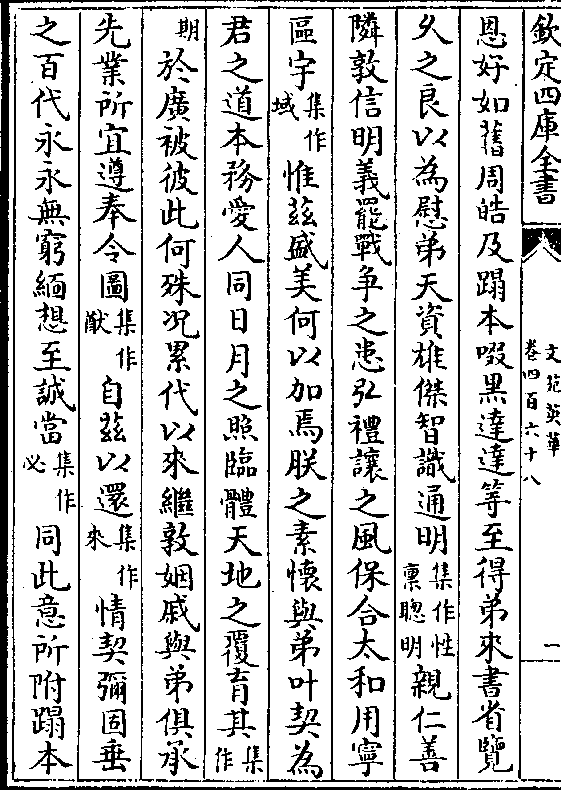 欽定四庫全書
文苑英華
卷四百六十八
一
恩好如舊周皓及蹋本啜黑達達等至得弟來書省覽
乆之良以為慰弟天資雄傑智識通明集作性禀聰明親仁善
隣敦信明義罷戰争之患弘禮讓之風保合太和用寧
區宇集作域惟兹盛美何以加焉朕之素懷與弟叶契為
君之道本務愛人同日月之照臨體天地之覆育其集作
期於廣被彼此何殊况累代以來繼敦姻戚與弟俱承
先業所宜遵奉令圖集作猷自兹以還集作來情契彌固垂
之百代永永無窮緬想至誠當集作必同此意所附蹋本